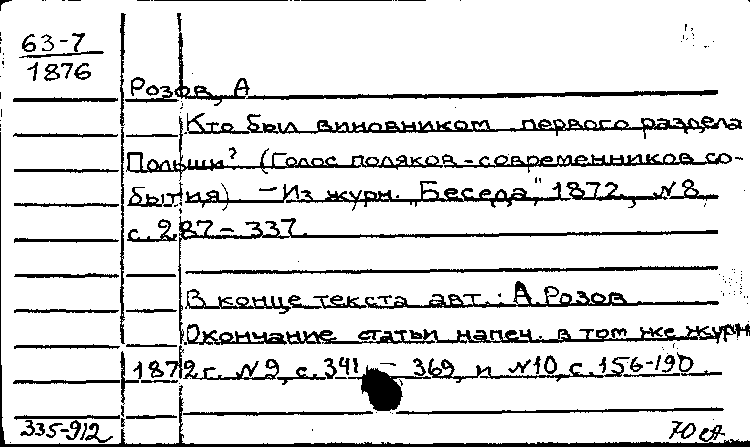 63-7
1876
Розов, А.
Кто был виновником первого раздела
Польши? (Голос поляков-современников со-
бытия) - Из журн. „Беседа", 1872, №8,
с. 287 - 337.
В конце текста авт.: А. Розов
Окончание статьи напеч. в том же журн.
1872 г. №9, с. 341 - 369, и №10, с. 156-190.
335-912